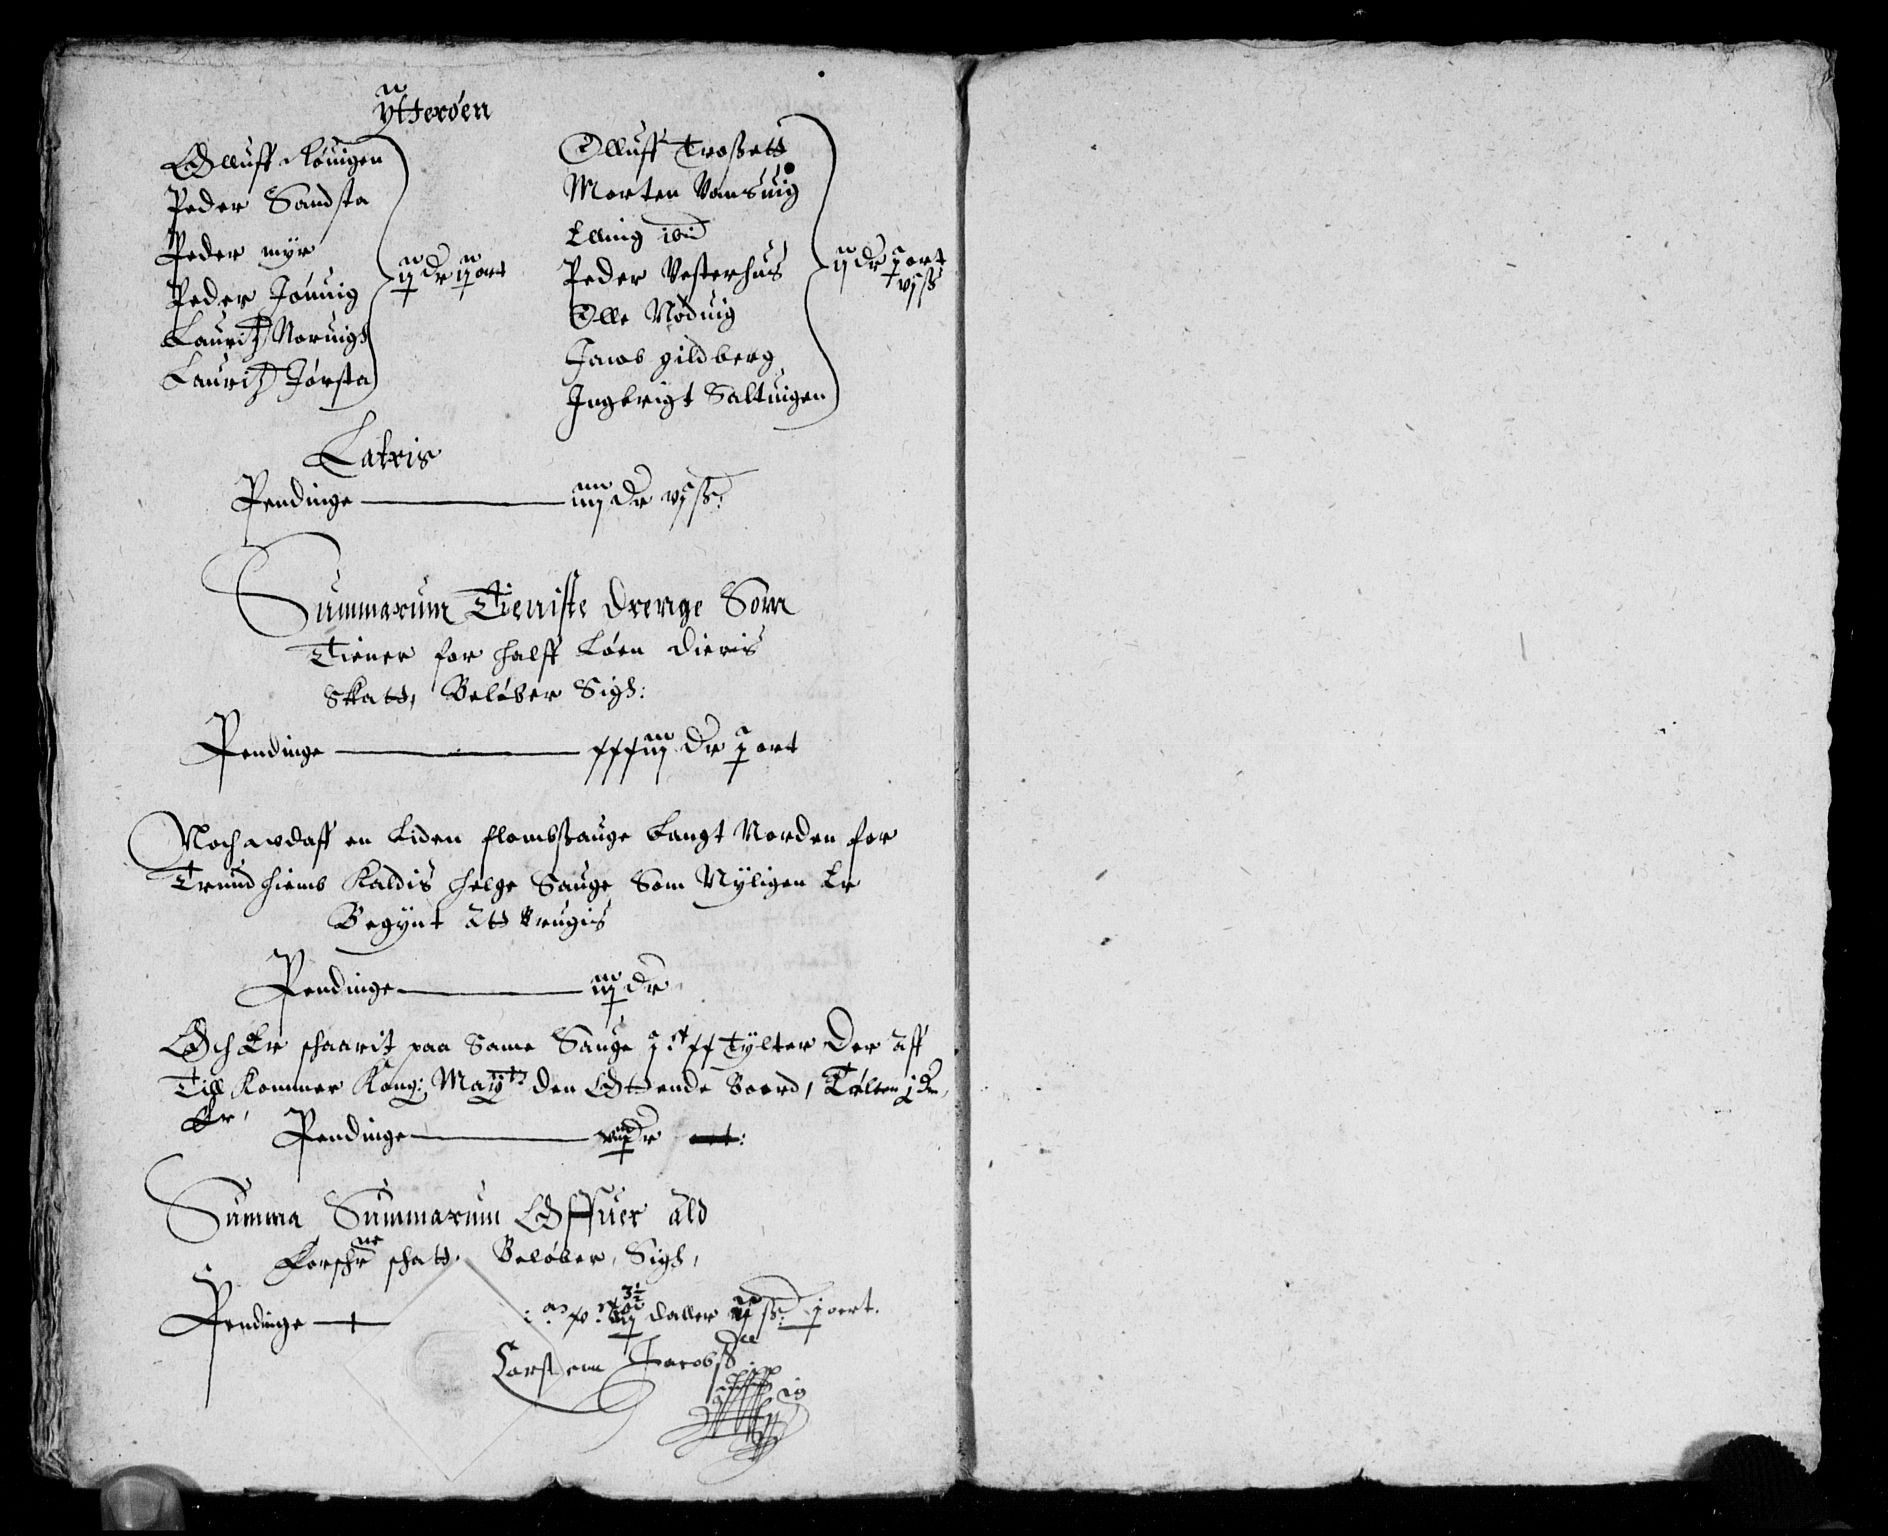 Ytterøen
Olluff Løuigen
Peder Sandsta
Peder myr
Peder Jønuig
Lauritz Noruigh
Lauritz Jørsta
ij dr ij ort
Olluff Troßett
Morten Vansuig
Elling ibid
Peder Vesterhus
Olle Nøduig
Jacob gildberg
Ingbrigt Saltuigen
ij dr j ort
vj ß
Lateris
Pendinge — iiij dr vj ß:
Summarum Tieniste drenge Som
Tiener for halff Løen dieris
Skatt, Beløber Sigh:
Pendinge — xxxiij dr j ort
Noch aff en Liden flombsauge Langt Norden for
Trundhiemb Kaldis helge Sauge Som Nyligen Er
Begynt att brugis
Pendinge — iij dr
Och Er schaarit paa Same Sauge j c xx Tylter Der aff
Till Kommer Kong: Maytz den Ottende Boord, Tølten j dr
Er,
Pendinge — dr
Summa Summarum Offuer ald
Forschne schatt. Beløber, Sigh,
Pendinge — daller ß: j oert.
Carsten Jacobsß